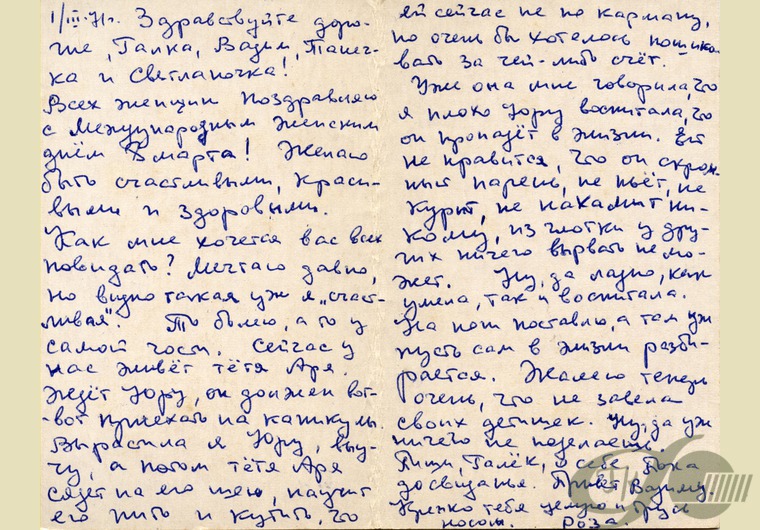 1/III-71г. Здравствуйте доро-
гие, Галка, Вадим, Танеч-
ка и Светланочка!
Всех женщин поздравляю
с Международным женским
днём 8 марта! Желаю
быть счастливыми, краси-
выми и здоровыми.
Как мне хочется вас всех
повидать? Мечтаю давно,
но видно такая уж я „счаст-
ливая". То болею, а то у
самой гости. Сейчас у
нас живёт тётя Аря.
Ждёт Юру, он должен вот-
-вот приехать на каникулы.
Вырастила я Юру, выу-
чу, а потом тётя Аря
сядет на его шею, научит
его пить и кутить, что
ей сейчас не по карману,
но очень бы хотелось пошико-
вать за чей-либо счёт.
Уже она мне говорила, что
я плохо Юру воспитала, что
он пропадёт в жизни. Ей
не нравится, что он скром-
ный парень, не пьёт, не
курит, не нахамит ни-
кому, из глотки у дру-
гих ничего вырвать не мо-
жет. Ну, да ладно, как
умела, так и воспитала.
На ноги поставлю, а там уж
пусть сам в жизни разби-
рается. Жалею теперь
очень, что не завела
своих детишек. Ну, да уж
ничего не поделаешь.
Пиши, Галёк, о себе. Пока
до свиданья. Привет Вадиму.
Крепко тебя целую и
носом. Роза